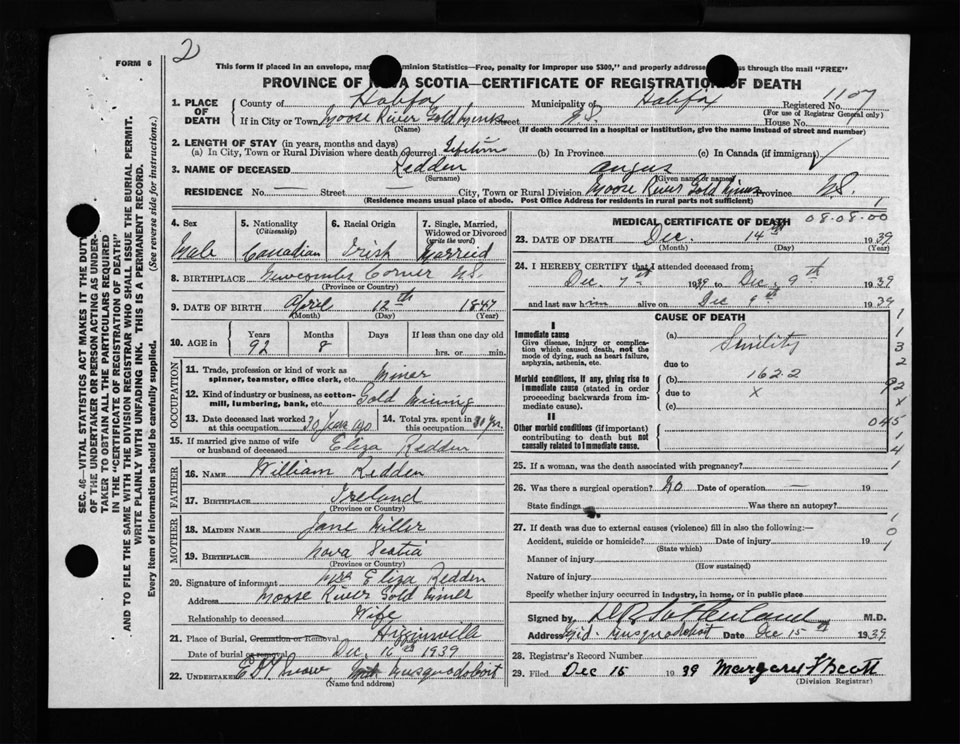 2
FORM 6
This form if placed in an envelope, mar minion Statistics—Free, penalty for improper use $300," and properly addresse us through the mail "FREE"
PROVINCE OF A SCOTIA—CERTIFICATE OF REGISTRATION OF DEATH
1107
1. PLACE OF DEATH
County of Halifax Municipality of Halifax Registered No.
(For use of Registrar General only)
If in City or Town Moose River Gold Mines Street N.S. House No.
(Name) (If death occurred in a hospital or institution, give the name instead of street and number)
2. LENGTH OF STAY (in years, months and days)
(a) In City, Town or Rural Division where death occurred Lifetime (b) In Province (c) In Canada (if immigrant)
3. NAME OF DECEASED Redden Angus
(Surname) (Given name or names)
RESIDENCE No. — Street — City, Town or Rural Division Moose River Gold Mines Province N.S.
(Residence means usual place of abode. Post Office Address for residents in rural parts not sufficient)
4. Sex 5. Nationality (Citizenship) 6. Racial Origin 7. Single, Married, Widowed or Divorced (write the word)
Male Canadian Irish Married
8. BIRTHPLACE Newcombs Corner N.S.
(Province or Country)
9. DATE OF BIRTH April 12th 1847
(Month) (Day) (Year)
10. AGE in Years Months Days If less than one day old
92 8 hrs. or min.
OCCUPATION
11. Trade, profession or kind of work as spinner, teamster, office clerk, etc. Miner
12. Kind of industry or business, as cotton-mill, lumbering, bank, etc. Gold Mining
13. Date deceased last worked at this occupation 30 Years ago 14. Total yrs. spent in this occupation
15. If married give name of wife or husband of deceased Eliza Redden
FATHER
16. NAME William Redden
17. BIRTHPLACE Ireland
(Province or Country)
MOTHER
18. MAIDEN NAME Jane Miller
19. BIRTHPLACE Nova Scotia
(Province or Country)
20. Signature of informant Mrs Eliza Redden
Address Moose River Gold Mines
Relationship to deceased Wife
21. Place of Burial, Cremation or Removal Higginsville
Date of burial or removal Dec. 16th 1939
22. UNDERTAKER Musquodoboit
(Name and address)
MEDICAL CERTIFICATE OF DEATH 08.08.00
23. DATE OF DEATH Dec. 14th 1939
(Month) (Day) (Year)
24. I HEREBY CERTIFY that I attended deceased from:
Dec. 7th 1939 to Dec. 9th 1939
and last saw him alive on Dec 9th 1939
CAUSE OF DEATH
I
Immediate cause
Give disease, injury or complication which caused death, not the mode of dying, such as heart failure, asphyxia, asthenia, etc.
(a) Senility
due to
Morbid conditions, if any, giving rise to immediate cause (stated in order proceeding backwards from immediate cause).
(b) 162.2
due to x
(c)
II
Other morbid conditions (if important) contributing to death but not causally related to immediate cause.
1
1
3
2
92
x
045
1
4
1
25. If a woman, was the death associated with pregnancy?
26. Was there a surgical operation? No Date of operation — 19
State findings Was there an autopsy?
27. If death was due to external causes (violence) fill in also the following:—
Accident, suicide or homicide? Date of injury 19
(State which)
1
0
1
Manner of injury
(How sustained)
Nature of injury
Specify whether injury occurred in industry, in home, or in public place
Signed by M.D.
Address Mid. Musquodoboit Date Dec 15th 1939
28. Registrar's Record Number
29. Filed Dec 15 1939 Margaret
(Division Registrar)
SEC. 46—VITAL STATISTICS ACT MAKES IT THE DUTY
OF THE UNDERTAKER OR PERSON ACTING AS UNDERTAKER TO OBTAIN ALL THE PARTICULARS REQUIRED
IN THE "CERTIFICATE OF REGISTRATION OF DEATH"
AND TO FILE THE SAME WITH THE DIVISION REGISTRAR WHO SHALL ISSUE THE BURIAL PERMIT.
WRITE PLAINLY WITH UNFADING INK. THIS IS A PERMANENT RECORD.
Every item of information should be carefully supplied. (See reverse side for instructions.)